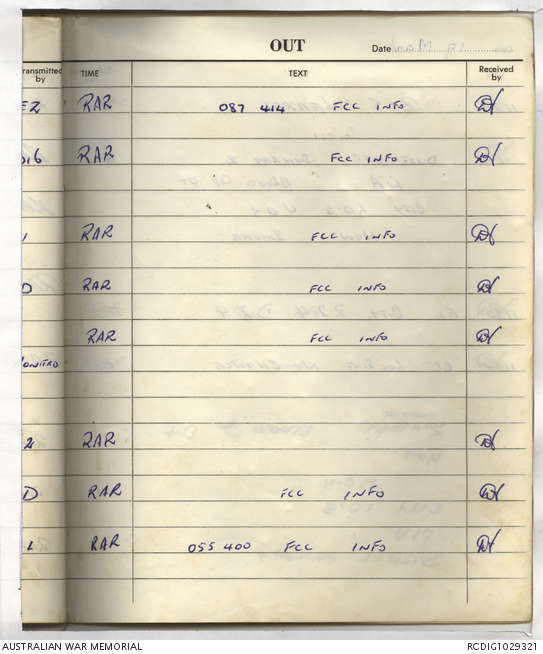 OUT
Date
Transmitted by TIME TEXT Received by
EZ RAR 087 414 FCC INFO
16 RAR FCC INFO
1 RAR FCC INFO
D RAR FCC INFO
RAR FCC INFO
ONITRO
2 RAR
D RAR FCC INFO
1 RAR 055 400 FCC INFO
AUSTRALIAN WAR MEMORIAL RCDIG1029321